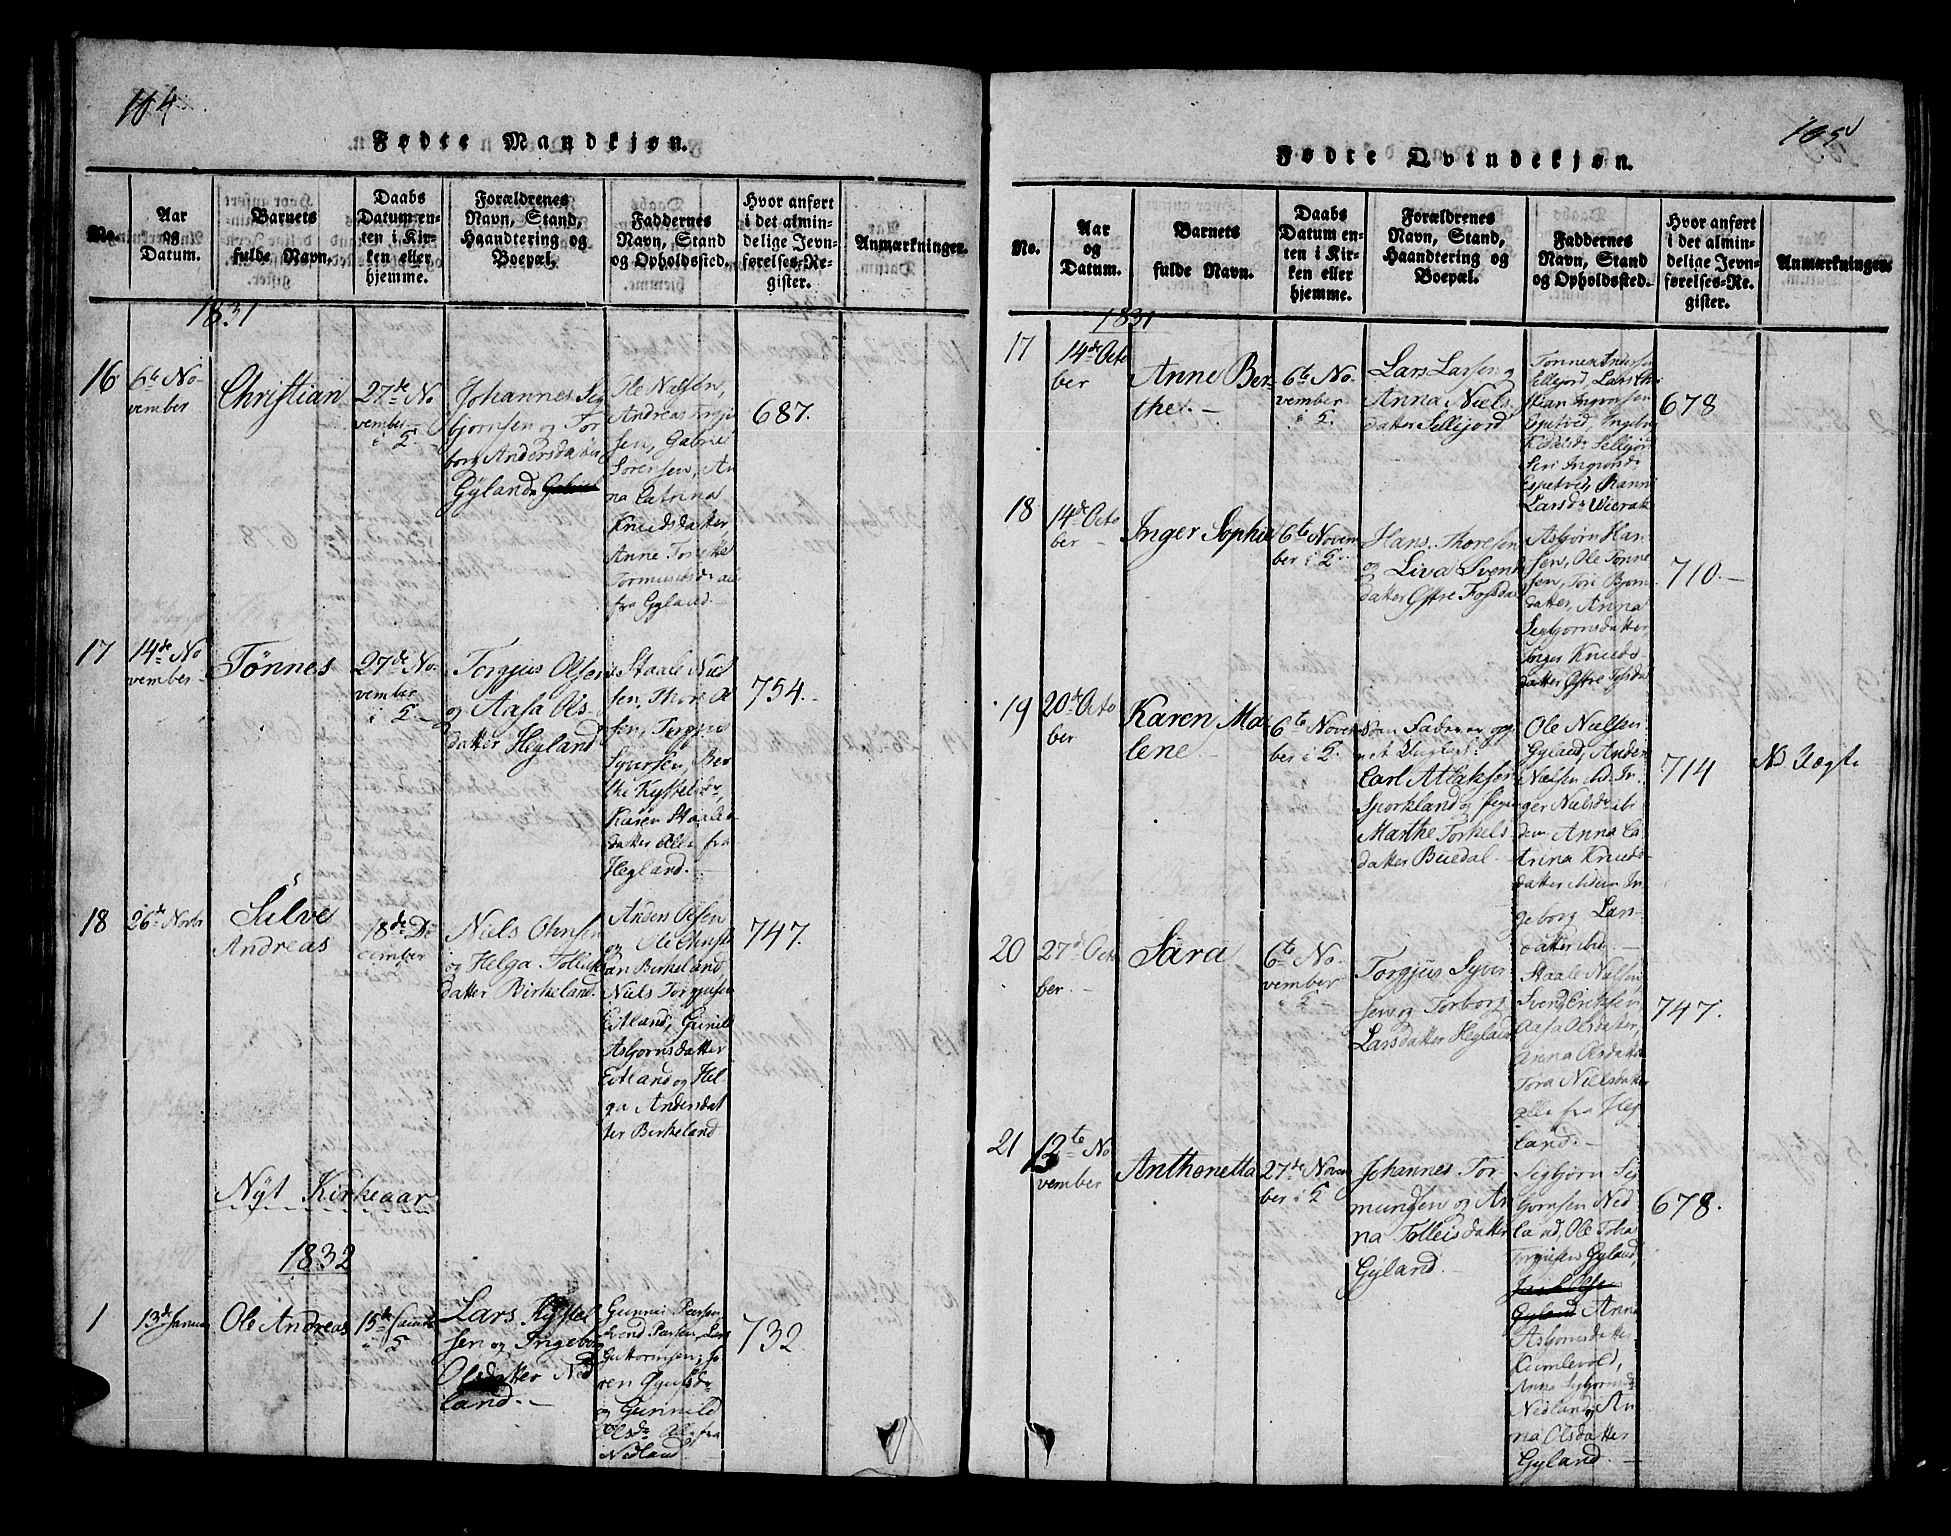 104
Fødte Mandkjøn.
No.
Aar
og
Datum.
Barnets
fulde Navn.
Daabs
Datum en-
ten i Kir-
ken eller
hjemme.
Forældrenes
Navn, Stand,
Haandtering og
Boepæl.
Faddernes
Navn, Stand
og Opholdssted.
Hvor anført
i det almin-
delige Jevn-
førelses-Re-
gister.
Anmærkninger.
1831
16
6te No-
vember
Christian
27de No
vember
i K
Johannes Sig
bjørnsen og Tor
borg Andersdatter
Gyland
Ole Nielsen,
Andreas Torju
sen, Gabriel
Sørensen, An
na Catrina
Knudsdatter
Anne Tonette
Tormunds dr alle
fra Gyland.
687.
17
14de No
vember
Tönnes
27de No-
vember
i K
Torgjus Olsen
og Aasa Ols-
datter Hegland
Staale Niel
sen, Thore Ol
sen, Torgjus
Syversen, Ber
the Kystelsdr,
Karen Staals
datter alle fra
Hegland.
754.
18
26de Novbr
Sülve
Andreas
18de De
cember
Niels Ohnsen
og Helga Tolleiks
datter Birkeland.
Anders Olsen
og Ole Christi
an Birkeland,
Niels Torgjusen
Eitland, Gunild
Asbjørnsdatter
Eitland og Hel
ga Andersdat
ter Birkeland
747.
Nÿt Kirkeaar
1832
1
13de Januar
Ole Andreas
15de Janua
i K
Lars Kystel
sen og Ingeborg
Olsdatter Ned
land.-
Gunnar Pedersen,
Svend Pedersen, Lars
Guttormsen, 
ren Gjulsdr
og Gunnild
Olsdr Alle fra
Nedland
732
105
Fødte Qvindekjøn.
No.
Aar
og
Datum.
Barnets
fulde Navn.
Daabs
Datum en-
ten i Kir-
ken eller
hjemme.
Forældrenes
Navn, Stand,
Haandtering og
Boepæl.
Faddernes
Navn, Stand
og Opholdssted.
Hvor anført
i det almin-
delige Jevn-
førelses-Re-
gister.
Anmærkninger.
1831
17
14de Octo
ber
Anne Ber-
the.-
6te No-
vember
i K
Lars Larsen og
Anna Niels
datter Sellejord
Tønnes Andersen
Sellejord, Lars Chri
stian Ingvorsen
Espetved, Ingebor
Sellejor
Seri Ingvorsdr
Espetved,
Larsdr
678
18
14de Octo
ber
Inger Sophie
6te Novem
ber i K
Hans Thoresen
og Liva Svends
datter Østre Fossdal
Asbjørn Han
sen, Ole Tønne
sen, Tori Bjørns
datter, Anna
Sigbjørnsdatter,
Inger Knuds
datter Østre Fosdal
710.-
19
20de Octo
ber
Karen Ma
lene
6te Novem
ber i K
Som Fader er og
net Ungkarl
Carl Atlaksen
Sporkland og Pige
Marthe Torkels
datter Buedal
Ole Nielsen
Gyland, Anders
Nielsen ibid. In
ger Nielsdr ibi
dem Anna Ca
trina Knuds-
datter ibidem In
geborg Lars-
datter ibid.
714
NB Uægte
20
27de Octo
ber.
Sara
6te No-
vember
i K
Torgjus Syver
sen og Torborg
Larsdatter Hegland
Staale Nielsen
Svend Eriksen,
Aasa Olsdatter,
Anna Olsdatter
Tora Nielsdatter
alle fra Heg
land.-
747.
21
12te No
vember
Anthonetta
27de Novem
ber i K
Johannes Tor
mundsen og An
na Tolleifsdatter
Gyland.
Segbjørn Sig
bjørnsen Ned
land, Ole Tobias
Torgiusen Gyland,
Gyland Anna
Asbjørnsdatter
Kumlevold,
Anna Sigbjørnsdr
Nedland og An
na Olsdatter
Gyland.
678.